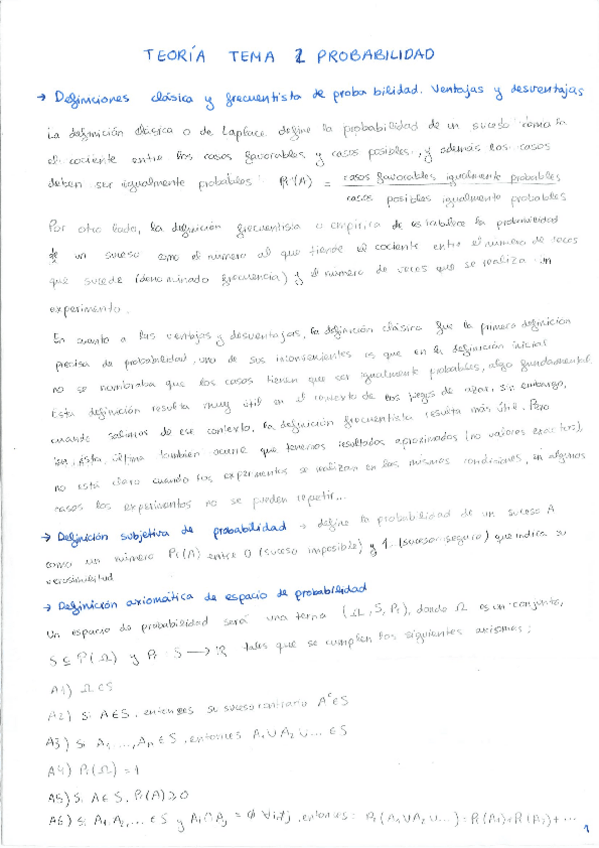 TEORÍA TEMA 1 PROBABILIDAD
→ Definiciones clásica y frecuentista de probabilidad. Ventajas y desventajas
La definición clásica o de Laplace define la probabilidad de un suceso como
el cociente entre los casos favorables y casos posibles, y además los casos
deben ser igualmente probables: Pr(A) = casos favorables igualmente probables
casos posibles igualmente probables
Por otro lado, la definición frecuentista o empírica establece la probabilidad
de un suceso como el número al que tiende el cociente entre el número de veces
que sucede (denominado frecuencia) y el número de veces que se realiza un
experimento.
En cuanto a las ventajas y desventajas, la definición clásica fue la primera definición
precisa de probabilidad, uno de sus inconvenientes es que en la definición inicial
no se nombraba que los casos tienen que ser igualmente probables, algo fundamental.
Esta definición resulta muy útil en el contexto de los juegos de azar, sin embargo,
cuando salimos de ese contexto, la definición frecuentista resulta más útil. Pero
ésta última también ocurre que tenemos resultados aproximados (no valores exactos),
no está claro cuando los experimentos se realizan en las mismas condiciones, en algunos
casos los experimentos no se pueden repetir...
→ Definición subjetiva de probabilidad → define la probabilidad de un suceso A
como un número Pr(A) entre 0 (suceso imposible) y 1 (suceso seguro) que indica su
verosimilitud
→ Definición axiomática de espacio de probabilidad
Un espacio de probabilidad será una terna (Ω, S, Pr), donde Ω es un conjunto,
S ⊆ P(Ω) y Pr: S → ℝ tales que se cumplen los siguientes axiomas:
A1) Ω ∈ S
A2) Si A ∈ S, entonces su suceso contrario Aᶜ ∈ S
A3) Si A₁, ..., Aₙ ∈ S, entonces A₁ ∪ A₂ ∪ ... ∈ S
A4) Pr(Ω) = 1
A5) Si A ∈ S, Pr(A) ≥ 0
A6) Si A₁, A₂, ... ∈ S y Ai ∩ Aj = ∅ ∀ i ≠ j, entonces: Pr(A₁ ∪ A₂ ∪ ...) = Pr(A₁) + Pr(A₂) + ...
1